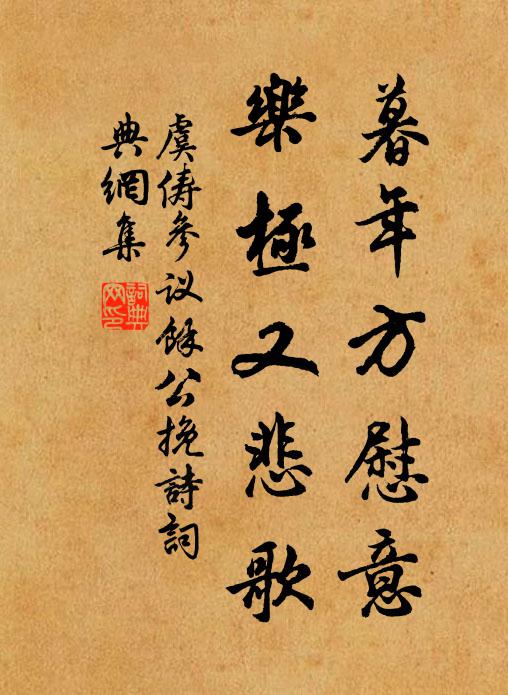 暮年方慰意
樂極又悲歌
虞儔參议餘公挽詩詞
典網集
詞典
网印